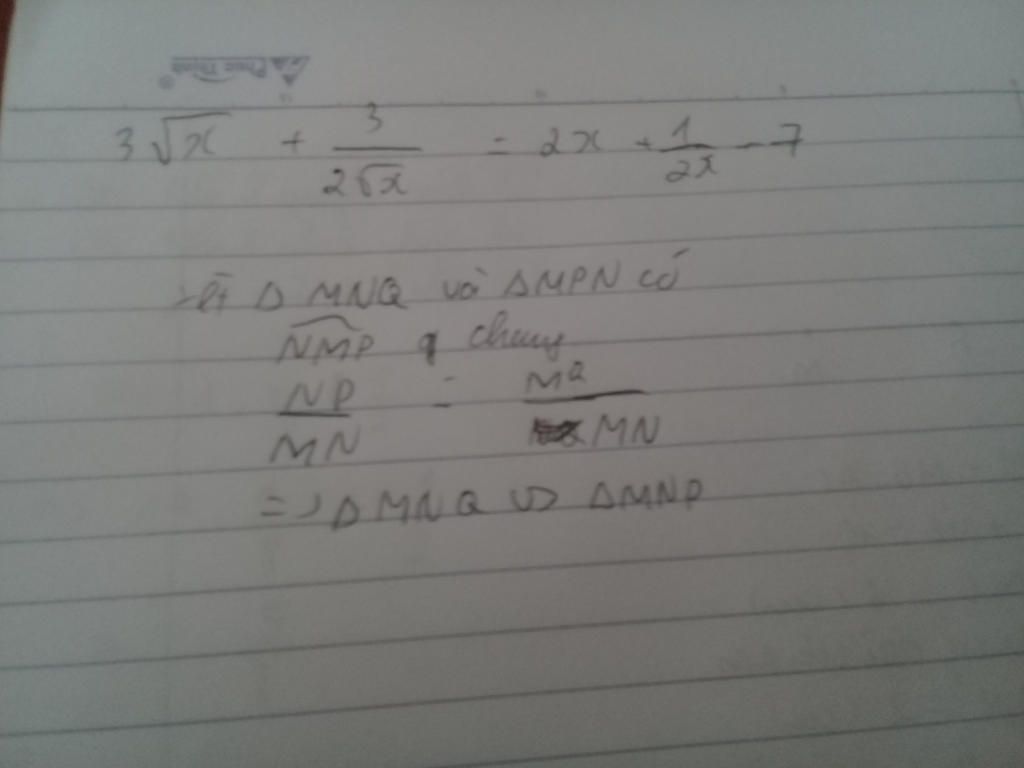 Phúc Thịnh
3√x + 3/(2√x) = 2x + 1/(2x) - 7
Xét Δ MNQ và Δ MPN có
NMP chung
NP/MN = MQ/MN
=> Δ MNQ ∽ Δ MNP